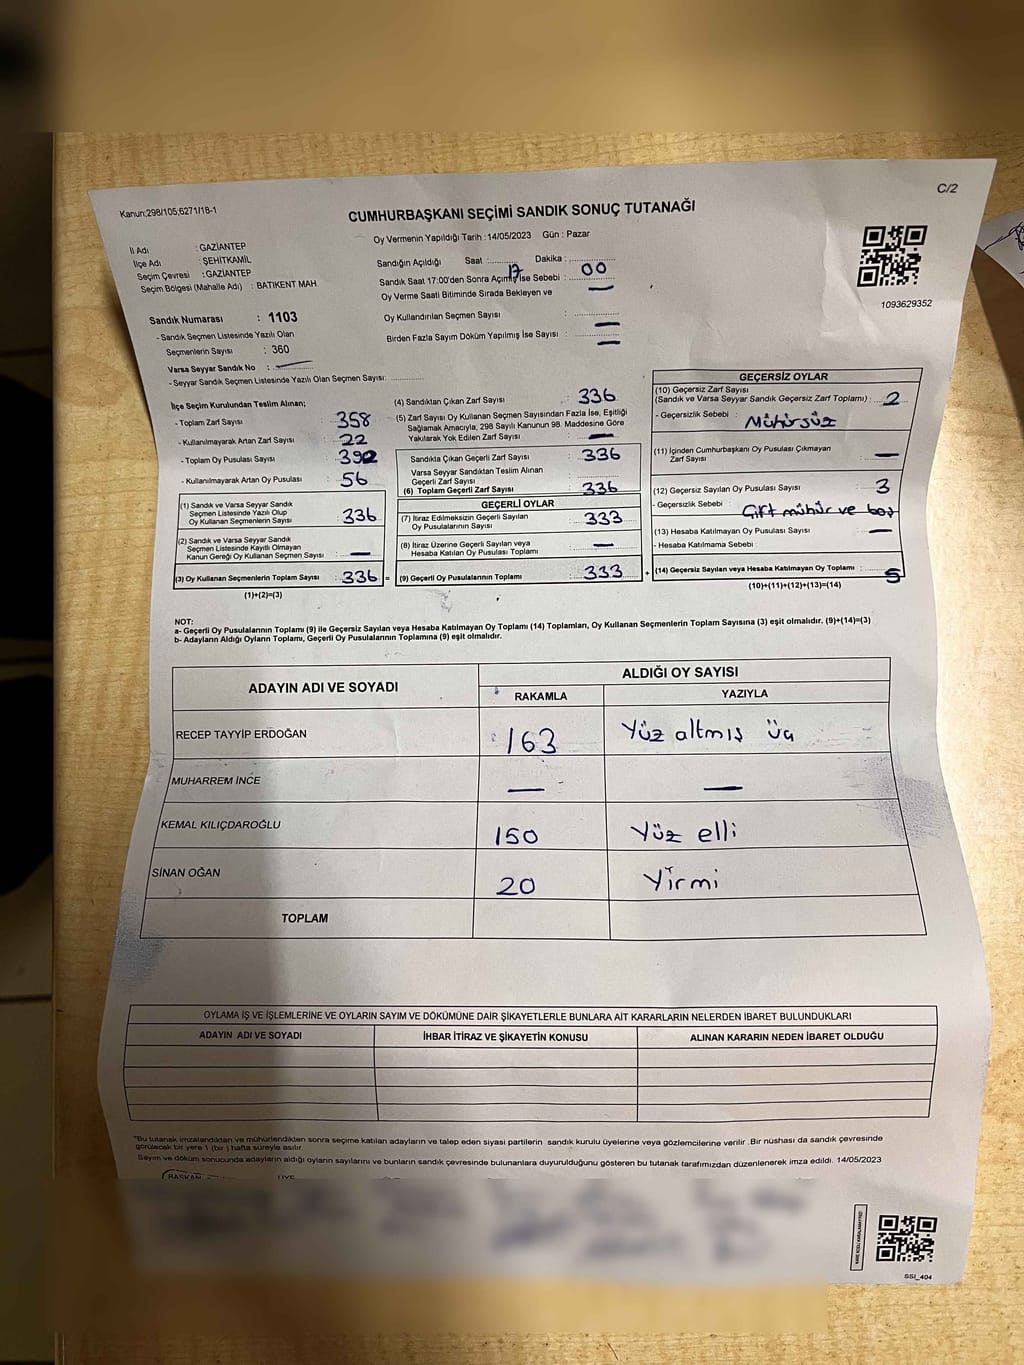 C/2
Kanun;298/105;6271/18-1
CUMHURBAŞKANI SEÇİMİ SANDIK SONUÇ TUTANAĞI
Oy Vermenin Yapıldığı Tarih :14/05/2023 Gün : Pazar
İl Adı : GAZİANTEP
İlçe Adı : ŞEHİTKAMİL
Seçim Çevresi : GAZİANTEP
Seçim Bölgesi (Mahalle Adı) : BATIKENT MAH.
Sandığın Açıldığı Saat :......... 17 Dakika :......... 00
Sandık Saat 17:00'den Sonra Açılmış İse Sebebi : —
Oy Verme Saati Bitiminde Sırada Bekleyen ve
Oy Kullandırılan Seçmen Sayısı : —
Birden Fazla Sayım Döküm Yapılmış İse Sayısı : —
1093629352
Sandık Numarası : 1103
- Sandık Seçmen Listesinde Yazılı Olan
Seçmenlerin Sayısı : 360
Varsa Seyyar Sandık No : —
- Seyyar Sandık Seçmen Listesinde Yazılı Olan Seçmen Sayısı: ............
İlçe Seçim Kurulundan Teslim Alınan;
- Toplam Zarf Sayısı : 358
- Kullanılmayarak Artan Zarf Sayısı : 22
- Toplam Oy Pusulası Sayısı : 392
- Kullanılmayarak Artan Oy Pusulası : 56
(1) Sandık ve Varsa Seyyar Sandık
Seçmen Listesinde Yazılı Olup
Oy Kullanan Seçmenlerin Sayısı : 336
(2) Sandık ve Varsa Seyyar Sandık
Seçmen Listesinde Kayıtlı Olmayan
Kanun Gereği Oy Kullanan Seçmen Sayısı : —
(3) Oy Kullanan Seçmenlerin Toplam Sayısı : 336 =
(1)+(2)=(3)
(4) Sandıktan Çıkan Zarf Sayısı : 336
(5) Zarf Sayısı Oy Kullanan Seçmen Sayısından Fazla İse, Eşitliği
Sağlamak Amacıyla, 298 Sayılı Kanunun 98. Maddesine Göre
Yakılarak Yok Edilen Zarf Sayısı : —
Sandıkta Çıkan Geçerli Zarf Sayısı : 336
Varsa Seyyar Sandıktan Teslim Alınan
Geçerli Zarf Sayısı :
(6) Toplam Geçerli Zarf Sayısı : 336
GEÇERLİ OYLAR
(7) İtiraz Edilmeksizin Geçerli Sayılan
Oy Pusulalarının Sayısı : 333
(8) İtiraz Üzerine Geçerli Sayılan veya
Hesaba Katılan Oy Pusulası Toplamı : —
(9) Geçerli Oy Pusulalarının Toplamı : 333 +
GEÇERSİZ OYLAR
(10) Geçersiz Zarf Sayısı
(Sandık ve Varsa Seyyar Sandık Geçersiz Zarf Toplamı) : 2
- Geçersizlik Sebebi : Mühürsüz
(11) İçinden Cumhurbaşkanı Oy Pusulası Çıkmayan
Zarf Sayısı : —
(12) Geçersiz Sayılan Oy Pusulası Sayısı : 3
- Geçersizlik Sebebi : Çift mühür ve boş
(13) Hesaba Katılmayan Oy Pusulası Sayısı : —
- Hesaba Katılmama Sebebi :
(14) Geçersiz Sayılan veya Hesaba Katılmayan Oy Toplamı : 5
(10)+(11)+(12)+(13)=(14)
NOT:
a- Geçerli Oy Pusulalarının Toplamı (9) ile Geçersiz Sayılan veya Hesaba Katılmayan Oy Toplamı (14) Toplamları, Oy Kullanan Seçmenlerin Toplam Sayısına (3) eşit olmalıdır. (9)+(14)=(3)
b- Adayların Aldığı Oyların Toplamı, Geçerli Oy Pusulalarının Toplamına (9) eşit olmalıdır.
ADAYIN ADI VE SOYADI
ALDIĞI OY SAYISI
RAKAMLA YAZIYLA
RECEP TAYYİP ERDOĞAN 163 Yüz altmış üç
MUHARREM İNCE — —
KEMAL KILIÇDAROĞLU 150 Yüz elli
SİNAN OĞAN 20 Yirmi
TOPLAM
OYLAMA İŞ VE İŞLEMLERİNE VE OYLARIN SAYIM VE DÖKÜMÜNE DAİR ŞİKAYETLERLE BUNLARA AİT KARARLARIN NELERDEN İBARET BULUNDUKLARI
ADAYIN ADI VE SOYADI İHBAR İTİRAZ VE ŞİKAYETİN KONUSU ALINAN KARARIN NEDEN İBARET OLDUĞU
"Bu tutanak imzalandıktan ve mühürlendikten sonra seçime katılan adayların ve talep eden siyasi partilerin sandık kurulu üyelerine veya gözlemcilerine verilir .Bir nüshası da sandık çevresinde
görülecek bir yere 1 (bir ) hafta süreyle asılır.
Sayım ve döküm sonucunda adayların aldığı oyların sayılarını ve bunların sandık çevresinde bulunanlara duyurulduğunu gösteren bu tutanak tarafımızdan düzenlenerek imza edildi. 14/05/2023
BAŞKAN ÜYE
SSI_404